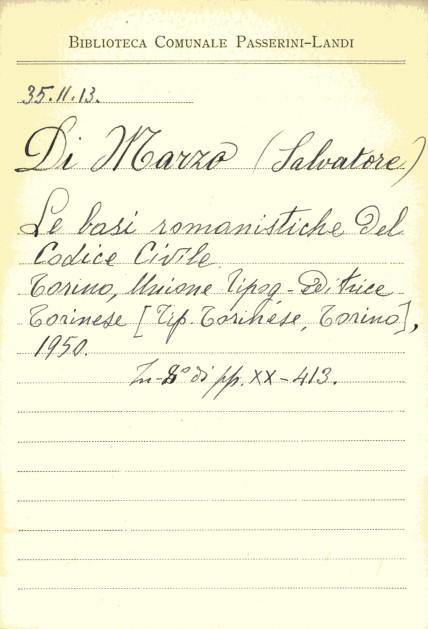 BIBLIOTECA COMUNALE PASSERINI-LANDI
35.II.13.
Di Marzo (Salvatore)
Le basi romanistiche del
Codice Civile.
Torino, Unione Tipog-Editrice
Torinese [Tip. Torinese, Torino],
1950.
In-8° di pp. XX-413.